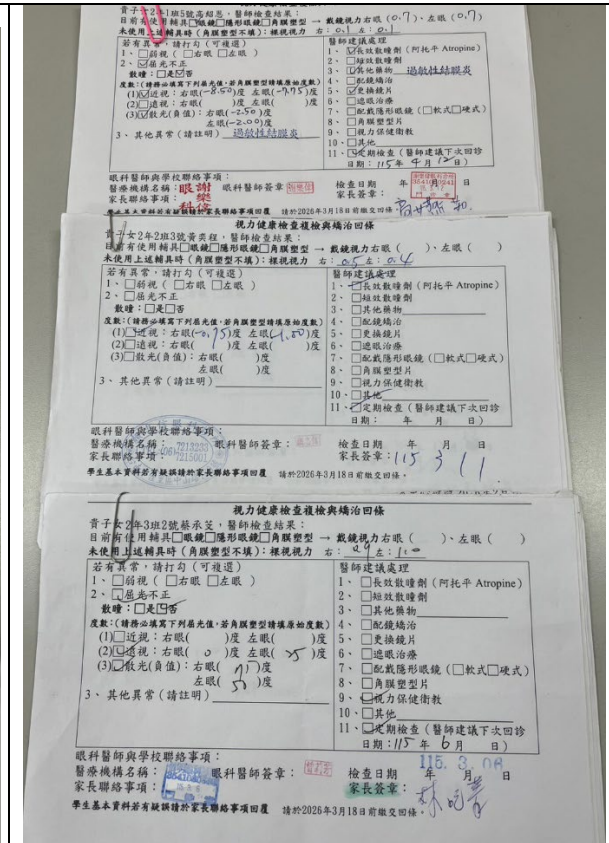 貴子女2年1班5號高紹恩,醫師檢查結果:
目前有使用輔具□眼鏡□隱形眼鏡□角膜塑型 → 戴鏡視力右眼(0.7)、左眼(0.7)
未使用上述輔具時(角膜塑型不填):裸視視力 右:0.1 左:0.1
若有異常,請打勾(可複選)
1、□弱視(□右眼 □左眼)
2、☑屈光不正
散瞳:□是☑否
度數:(請務必填寫下列屈光值,若角膜塑型請填原始度數)
(1)☑近視:右眼(-8.50)度 左眼(-7.75)度
(2)□遠視:右眼( )度 左眼( )度
(3)☑散光(負值):右眼(-2.50)度
左眼(-2.00)度
3、其他異常(請註明) 過敏性結膜炎
醫師建議處理
1、☑長效散瞳劑(阿托平 Atropine)
2、□短效散瞳劑
3、☑其他藥物 過敏性結膜炎
4、□配鏡矯治
5、☑更換鏡片
6、□遮眼治療
7、□配戴隱形眼鏡(□軟式□硬式)
8、□角膜塑型片
9、□視力保健衛教
10、□其他
11、☑定期檢查(醫師建議下次回診
日期:115年 4月 12日)
眼科醫師與學校聯絡事項:
醫療機構名稱: 眼科醫師簽章:
家長聯絡事項:
檢查日期 年 月 日
家長簽章:
學生基本資料若有疑誤請於家長聯絡事項回覆 請於2026年3月18日前繳交回條。
視力健康檢查複檢與矯治回條
貴子女2年2班3號黃奕程,醫師檢查結果:
目前有使用輔具□眼鏡□隱形眼鏡□角膜塑型 → 戴鏡視力右眼( )、左眼( )
未使用上述輔具時(角膜塑型不填):裸視視力 右:0.5 左:0.4
若有異常,請打勾(可複選)
1、□弱視(□右眼 □左眼)
2、□屈光不正
散瞳:□是□否
度數:(請務必填寫下列屈光值,若角膜塑型請填原始度數)
(1)☑近視:右眼(-0.75)度 左眼(-1.00)度
(2)□遠視:右眼( )度 左眼( )度
(3)□散光(負值):右眼( )度
左眼( )度
3、其他異常(請註明)
醫師建議處理
1、☑長效散瞳劑(阿托平 Atropine)
2、□短效散瞳劑
3、□其他藥物
4、□配鏡矯治
5、□更換鏡片
6、□遮眼治療
7、□配戴隱形眼鏡(□軟式□硬式)
8、□角膜塑型片
9、□視力保健衛教
10、□其他
11、☑定期檢查(醫師建議下次回診
日期: 年 月 日)
眼科醫師與學校聯絡事項:
醫療機構名稱: 眼科醫師簽章:
家長聯絡事項:
(06)7213233
7215001
檢查日期 年 月 日
家長簽章: 115 3 11
學生基本資料若有疑誤請於家長聯絡事項回覆 請於2026年3月18日前繳交回條。
視力健康檢查複檢與矯治回條
貴子女2年3班2號蔡承芠,醫師檢查結果:
目前有使用輔具□眼鏡□隱形眼鏡□角膜塑型 → 戴鏡視力右眼( )、左眼( )
未使用上述輔具時(角膜塑型不填):裸視視力 右:0.9 左:1.0
若有異常,請打勾(可複選)
1、□弱視(□右眼 □左眼)
2、☑屈光不正
散瞳:□是☑否
度數:(請務必填寫下列屈光值,若角膜塑型請填原始度數)
(1)□近視:右眼( )度 左眼( )度
(2)☑遠視:右眼( 0 )度 左眼( 25 )度
(3)☑散光(負值):右眼( 75 )度
左眼( 50 )度
3、其他異常(請註明)
醫師建議處理
1、□長效散瞳劑(阿托平 Atropine)
2、□短效散瞳劑
3、□其他藥物
4、□配鏡矯治
5、□更換鏡片
6、□遮眼治療
7、□配戴隱形眼鏡(□軟式□硬式)
8、□角膜塑型片
9、☑視力保健衛教
10、□其他
11、☑定期檢查(醫師建議下次回診
日期:115年 6月 日)
眼科醫師與學校聯絡事項:
醫療機構名稱: 眼科醫師簽章:
家長聯絡事項:
115. 3. 06
檢查日期 年 月 日
家長簽章:
學生基本資料若有疑誤請於家長聯絡事項回覆 請於2026年3月18日前繳交回條。